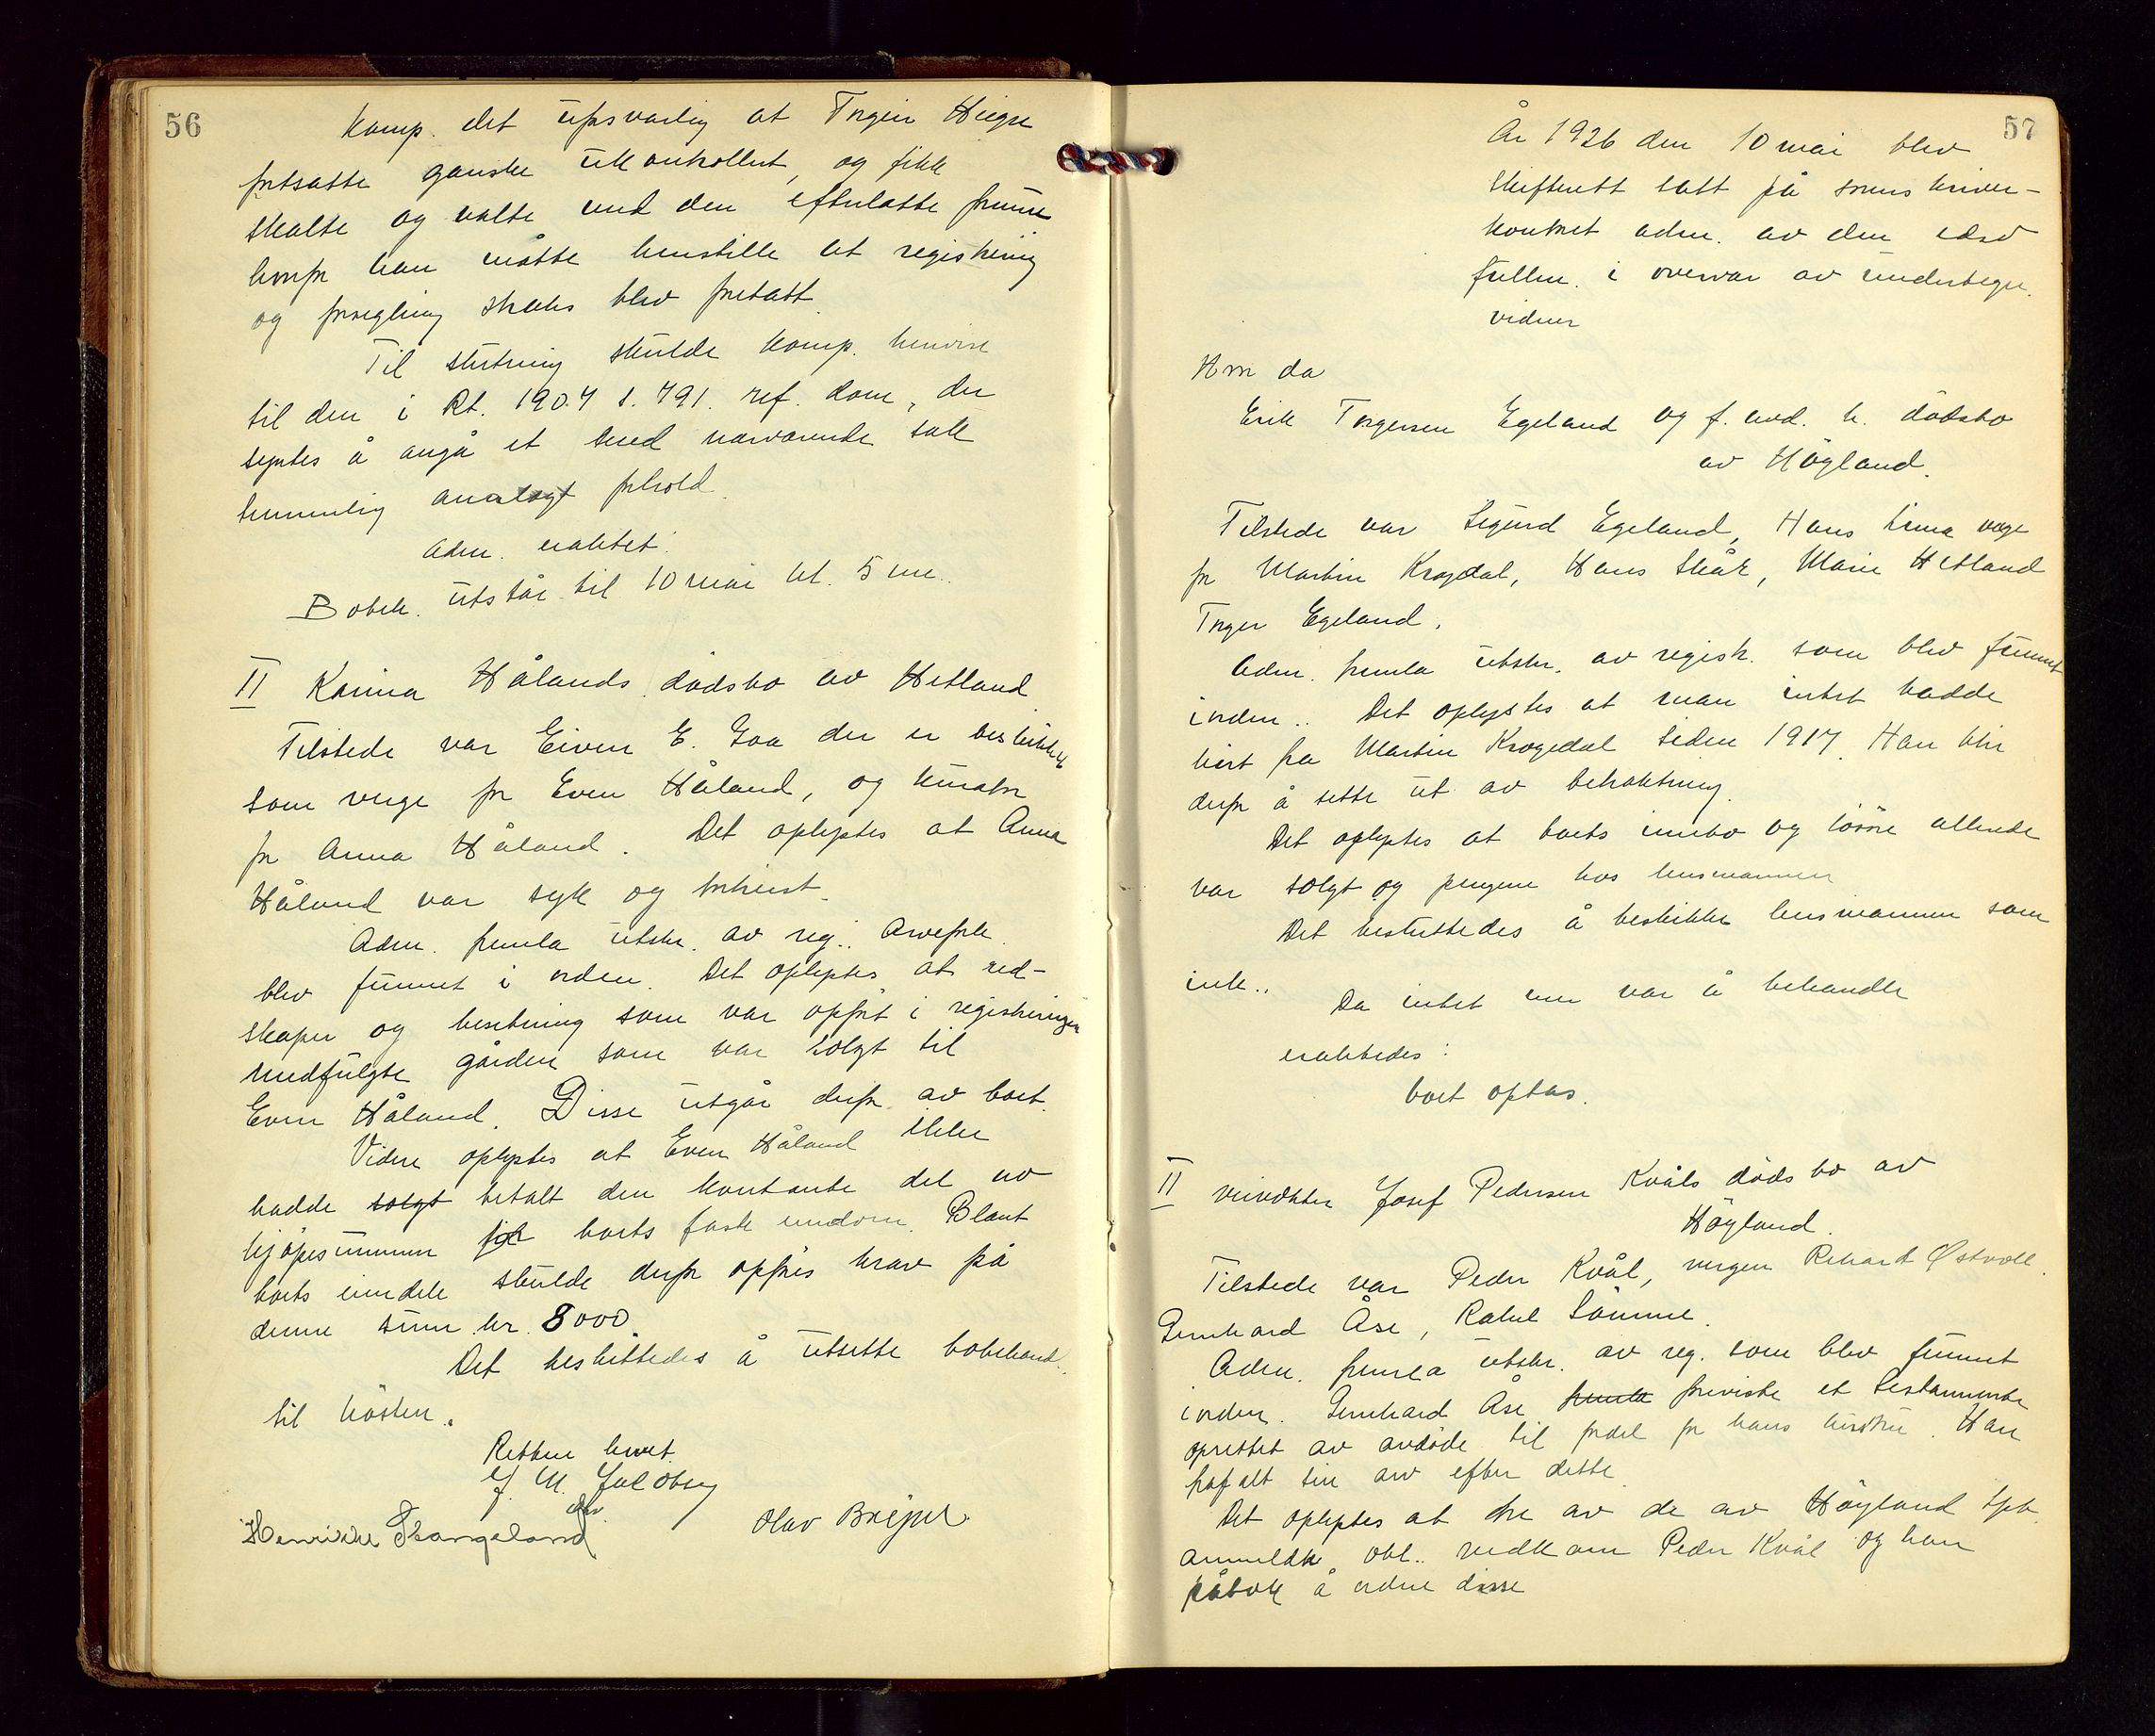 56
Komp. det uforsvarlig at Torger Hegre
fortsatte ganske ukontrollert, og fikk
skalte og valte med den efterlatte formue
hvorfor han måtte henstille at registrering
og forsegling straks blev foretatt.
Til slutning skulde komp. henvise
til den i Rt. 1904 s. 791. ref. dom, der
syntes å angå et med nærværende sak
temmelig analogt forhold.
Adm. eraktet:
Bobeh. utstår til 10 mai kl. 5 em..
II Karina Hålands dødsbo av Hetland.
Tilstede var Eiven E. Goa der er beskikket
som verge for Even Håland, og kurator
for Anna Håland. Det oplystes at Anna
Håland var syk og forhindret.
Adm. fremla utskr. av reg.. Arvefork.
blev funnet i orden. Det oplystes at red-
skaper og besetning som var opført i registreringen
medfulgte gården som var solgt til
Even Håland. Disse utgår derfor av boet.
Videre oplystes at Even Håland ikke
hadde solgt betalt den kontante del av
kjøpesummen for boets faste eiendom. Blant
boets eiendele skulde derfor opføres krav på
denne sum kr. 8000.
Det besluttedes å utsette bobehand.
til høsten.
Retten hevet.
Henrikke Stangeland
Olav
57
År 1926 den 10 mai blev
skifterett satt på sorenskriver-
kontoret adm. av den edsv
fullm. i overvær av undertegn.
vidner
Hvor da
Erik Torgersen Egeland og f. avd. h. dødsbo
av Høyland.
Tilstede var Sigurd Egeland, Hans Lima verge
for Martin Krogedal, Hans Skår, Marie Hetland
Torger Egeland.
Adm. fremla utskr. av registr. som blev funnet
i orden.. Det oplystes at man intet hadde
hørt fra Martin Krogedal siden 1917. Han blir
derfor å sette ut av betraktning.
Det oplystes at boets innbo og løsøre allerede
var solgt og pengene hos lensmannen
Det besluttedes å beskikke lensmannen som
ink..
Da intet mer var å behandle
eraktedes:
boet optas.
II veivokter Josef Pedersen Kvåls dødsbo av
Høyland.
Tilstede var Peder Kvål, vergen Rikard Østvoll.
Gerhard Åse, Rakel Sømme.
Adm. fremla utskr. av reg. som blev funnet
i orden. Gerhard Åse fremla foreviste et testamente
oprettet av avdøde til fordel for hans hustru. Han
frafalt sin arv efter dette.
Det oplystes at tre av de av Høyland spb.
anmeldte obl.. vedkom Peder Kvål og han
påtok å ordne disse